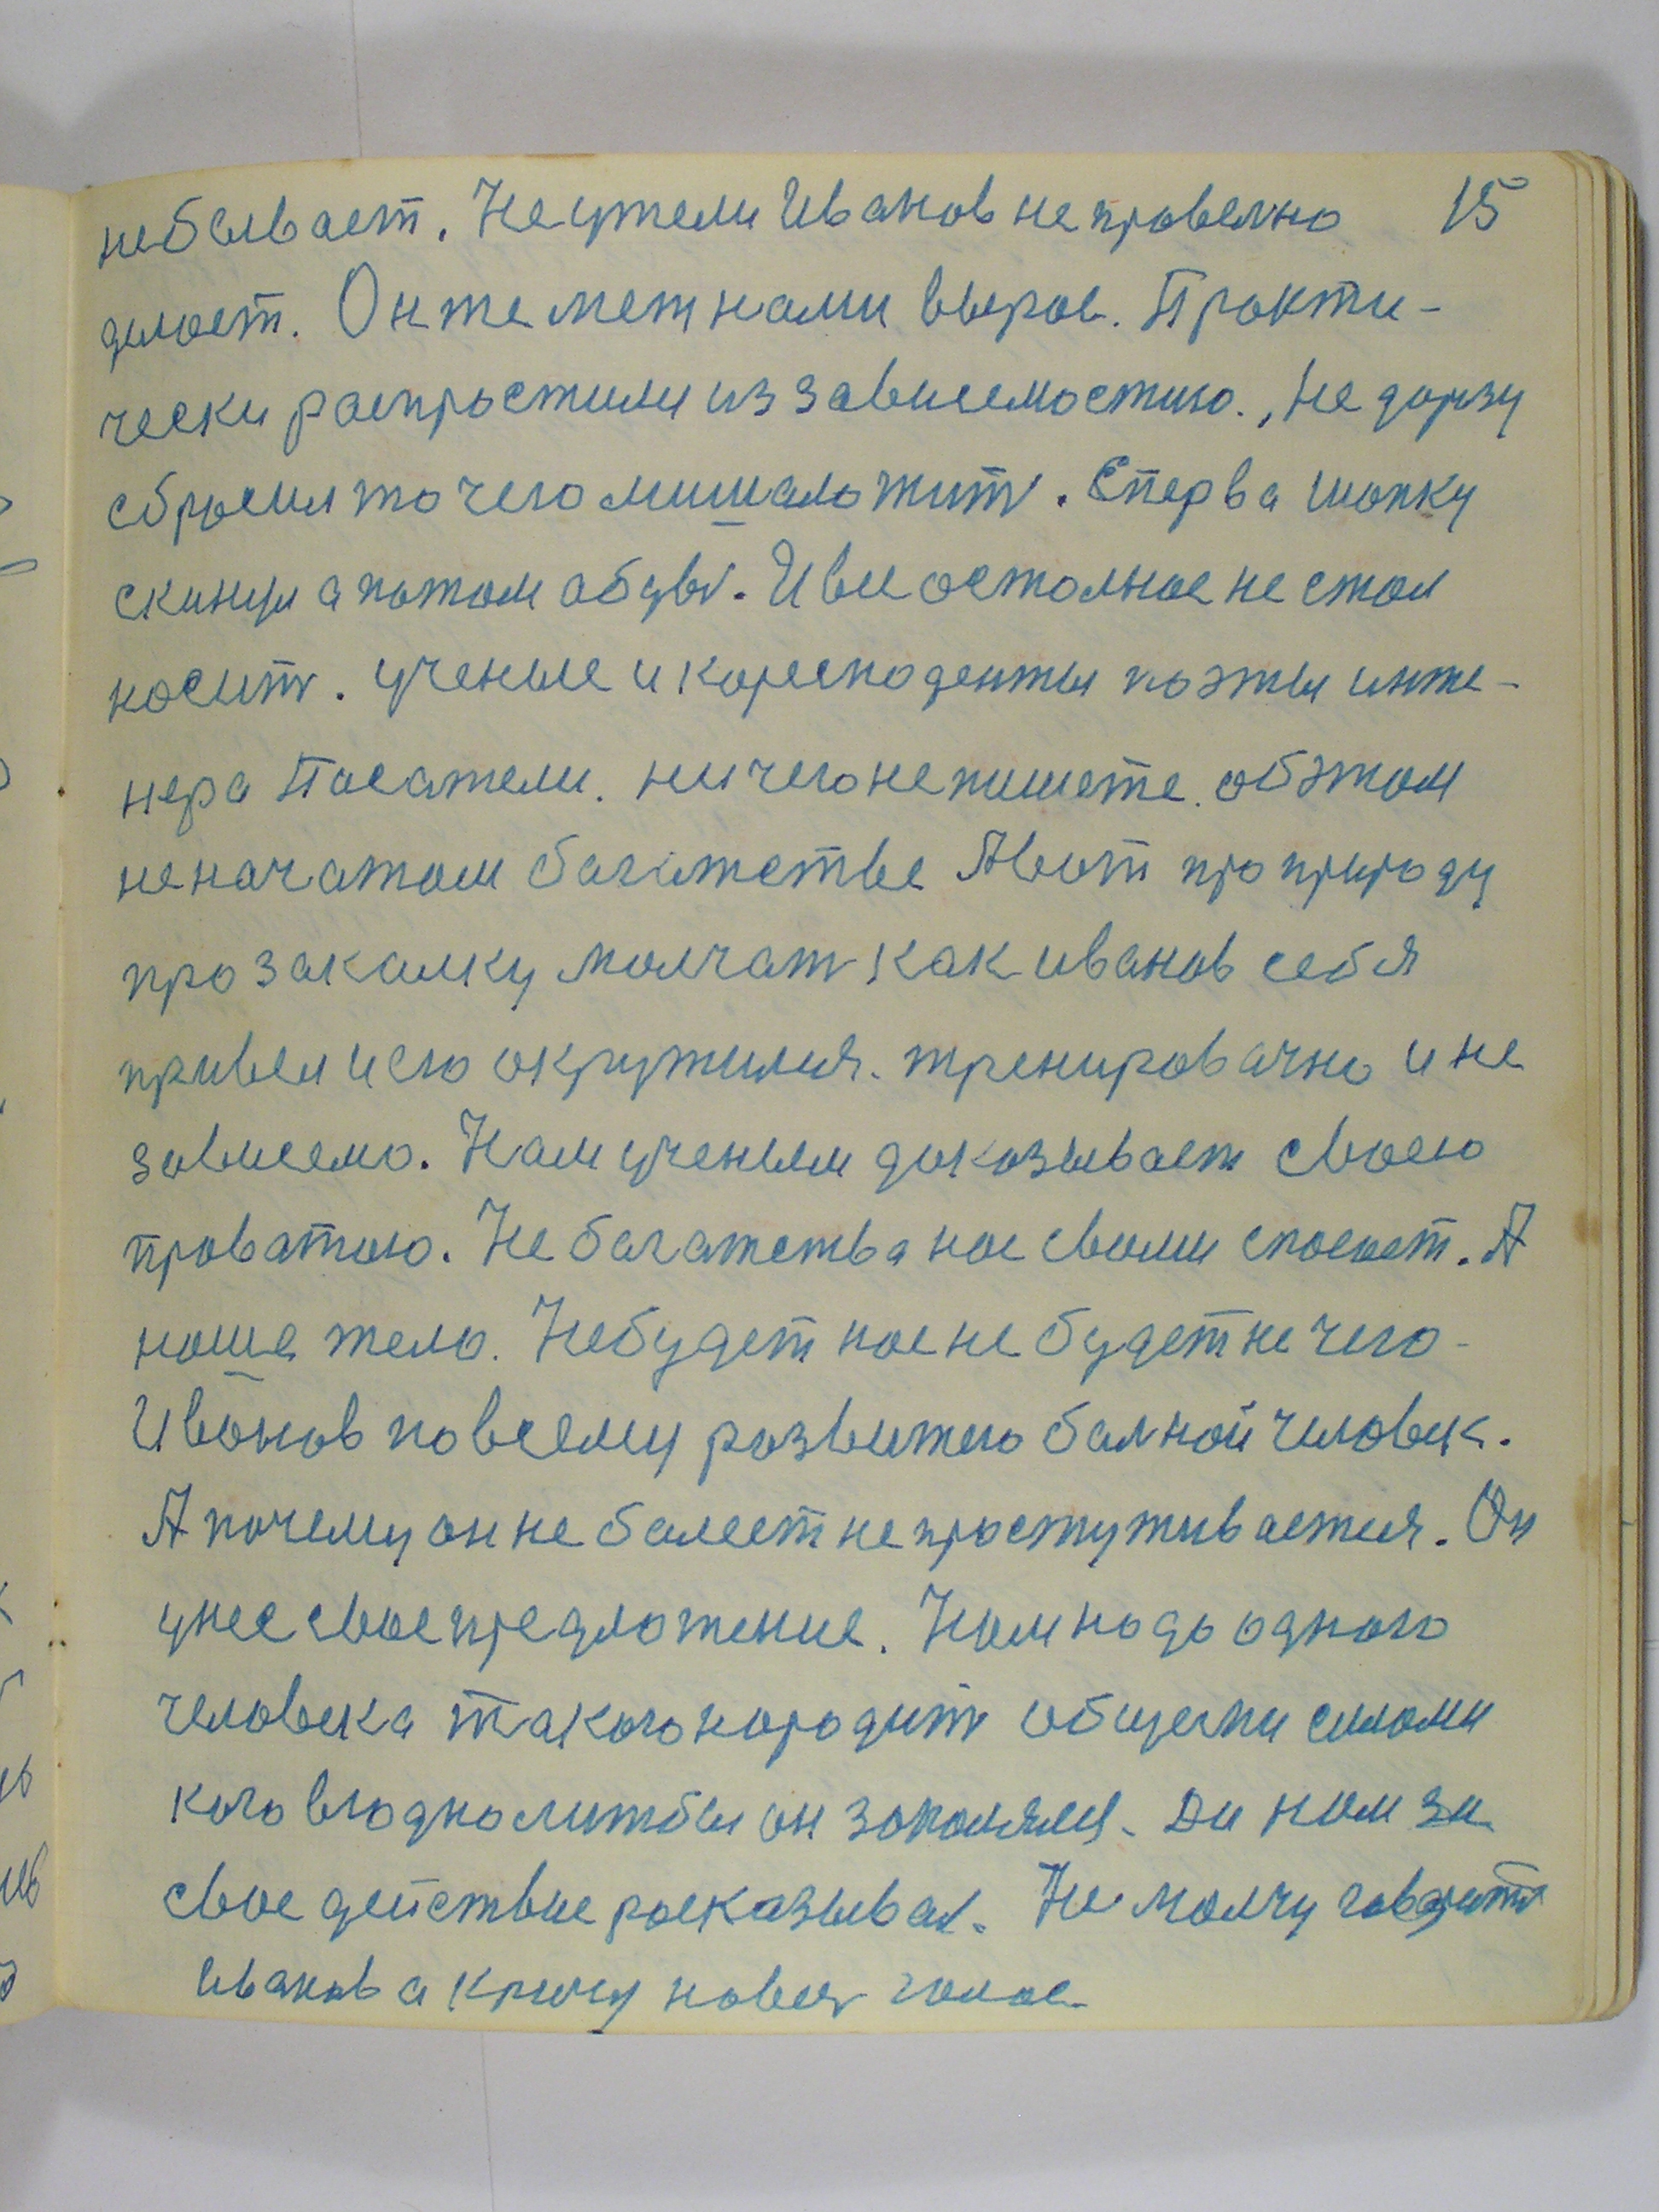 небывает. Неужели Иванов неправельно 15
делает. Онже меж нами вырос. Практи-
чески распростился из зависемостию., Не доразу
сбросил то чего мишало жить. Сперва шапку
скинул а потом абувь. И все остальное не стал
носить. ученые и кореспаденты поэты инже-
нера Писатели. ничегонепишете. обэтом
неначатом багатстве Авот проприроду
про закалку молчат как иванов себя
привел исго окружился. тренировачно и не
зависемо. Нам ученым доказывает своею
праватою. Не багатства нас своим спасает. А
наше тело. Небудет нас не будет не чего-
Иванов повсему развитию балной человек.
А почему он не балеет не простуживается. Он
унес свое предложение. Нам надо одного
человека такого народить общеми силами
кого вгодно литбы он запомялся. Ди нам за
свое действие расказывал. Не молчу гаварить
Иванов а кричу навесь голас-